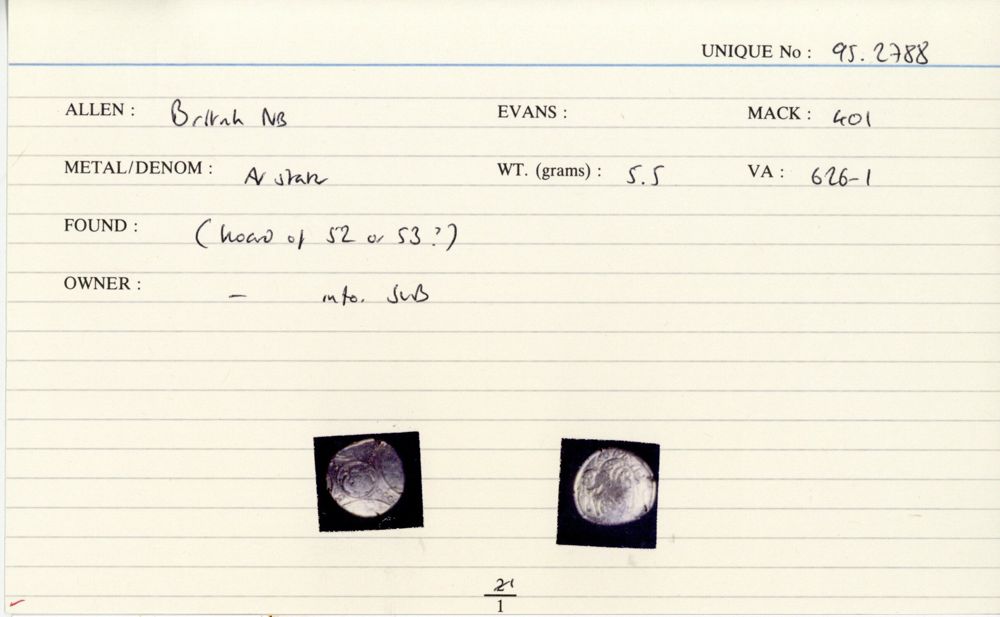 UNIQUE No : 95. 2788
ALLEN : British NB EVANS : MACK : 401
METAL/DENOM : AV stater WT. (grams) : 5.5 VA : 626-1
FOUND : (hoard of 52 or 53?)
OWNER : - info. SWB
21
1